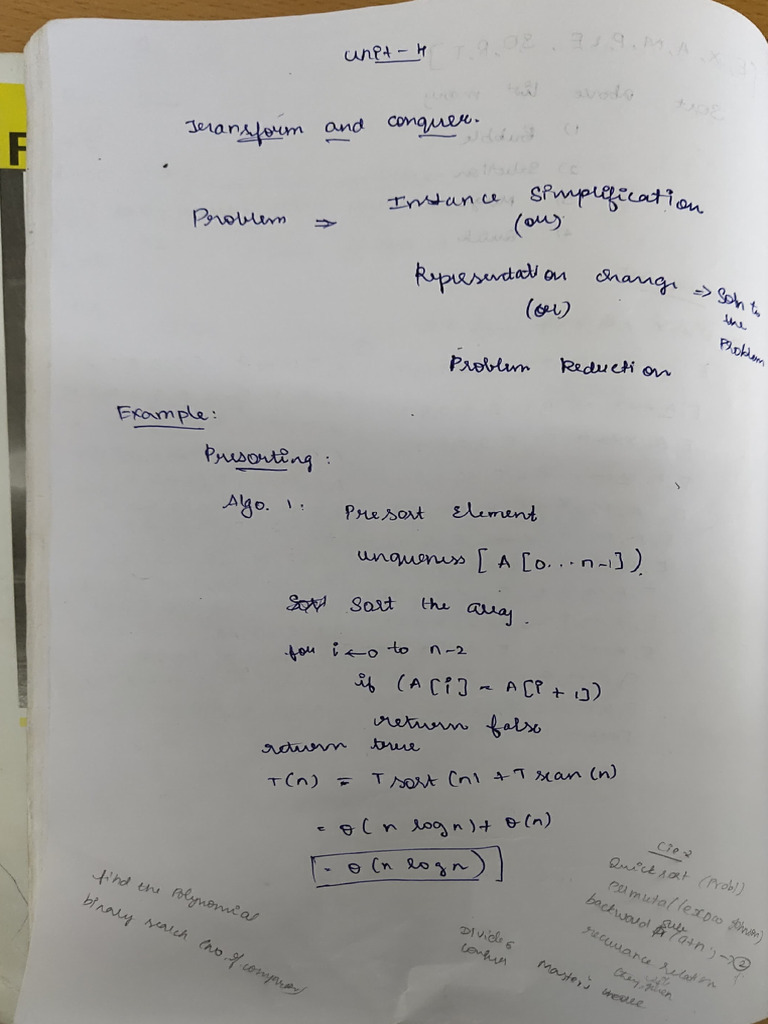 Unit - 4
Transform and conquer.
Problem ⇒ Instance Simplification
(or)
Representation change ⇒ Soln to
the
Problem
(or)
Problem Reduction
Example:
Presorting:
Algo. 1: Presort Element
unqueness [A[0...n-1])
Sort the array.
for i ← 0 to n-2
if (A[i] = A[i + 1])
return false
return true
T(n) = Tsort (n) + Tscan (n)
= θ(n logn) + θ(n)
= θ(n logn)
find the Polynomial
binary search (no. of
Cie-2
Quick sort (Probl)
backward
recurrence relation
Divide &
conquer
Master's
F